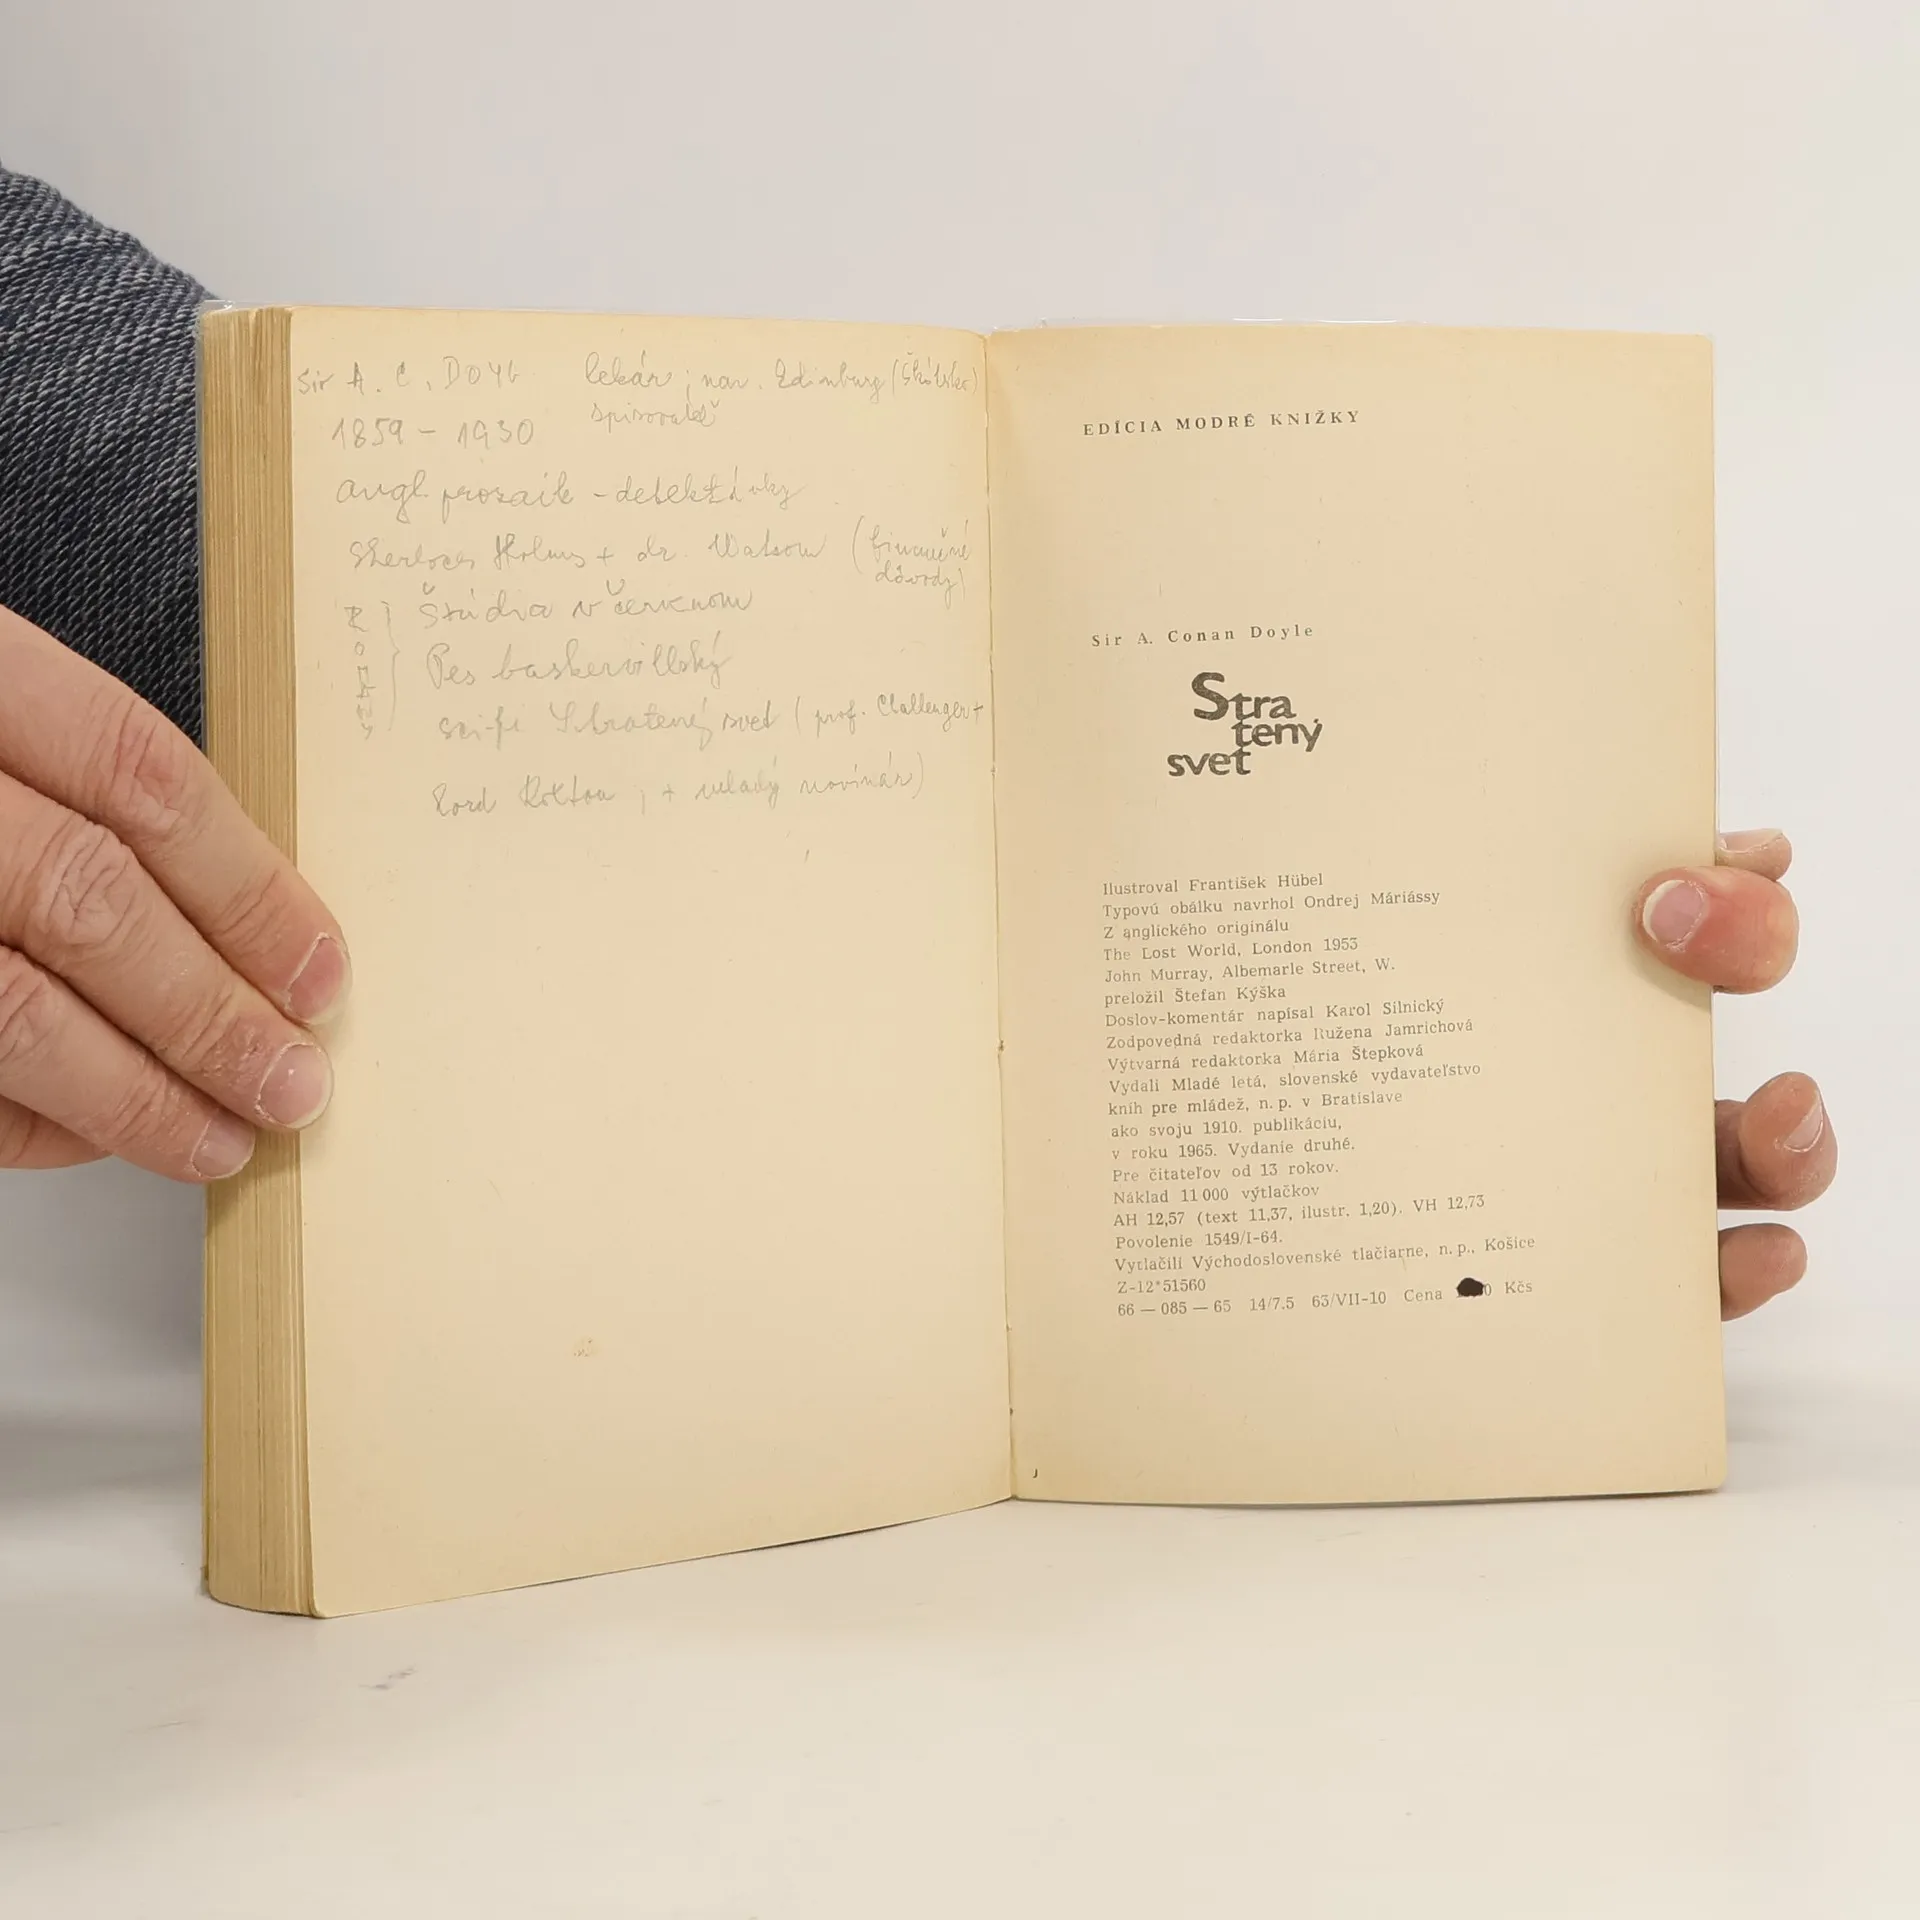 Sir A. C. Doyl lekár; nar. Edinburg (Škótsko)
spisovateľ
1859 - 1930
angl. prozaik - detektívky
Sherloces Holms + dr. Watson (finančné
dôvody)
Štúdia v červenom
Pes baskervillský
sci-fi Stratený svet (prof. Challenger +
Lord ; + mladý novinár)
EDÍCIA MODRÉ KNIŽKY
Sir A. Conan Doyle
Stra
tený
svet
Ilustroval František Hübel
Typovú obálku navrhol Ondrej Máriássy
Z anglického originálu
The Lost World, London 1953
John Murray, Albemarle Street, W.
preložil Štefan Kýška
Doslov-komentár napísal Karol Silnický
Zodpovedná redaktorka Ružena Jamrichová
Výtvarná redaktorka Mária Štepková
Vydali Mladé letá, slovenské vydavateľstvo
kníh pre mládež, n. p. v Bratislave
ako svoju 1910. publikáciu,
v roku 1965. Vydanie druhé.
Pre čitateľov od 13 rokov.
Náklad 11 000 výtlačkov
AH 12,57 (text 11,37, ilustr. 1,20). VH 12,73
Povolenie 1549/I-64.
Vytlačili Východoslovenské tlačiarne, n. p., Košice
Z-12*51560
66 — 085 — 65 14/7.5 63/VII-10 Cena Kčs